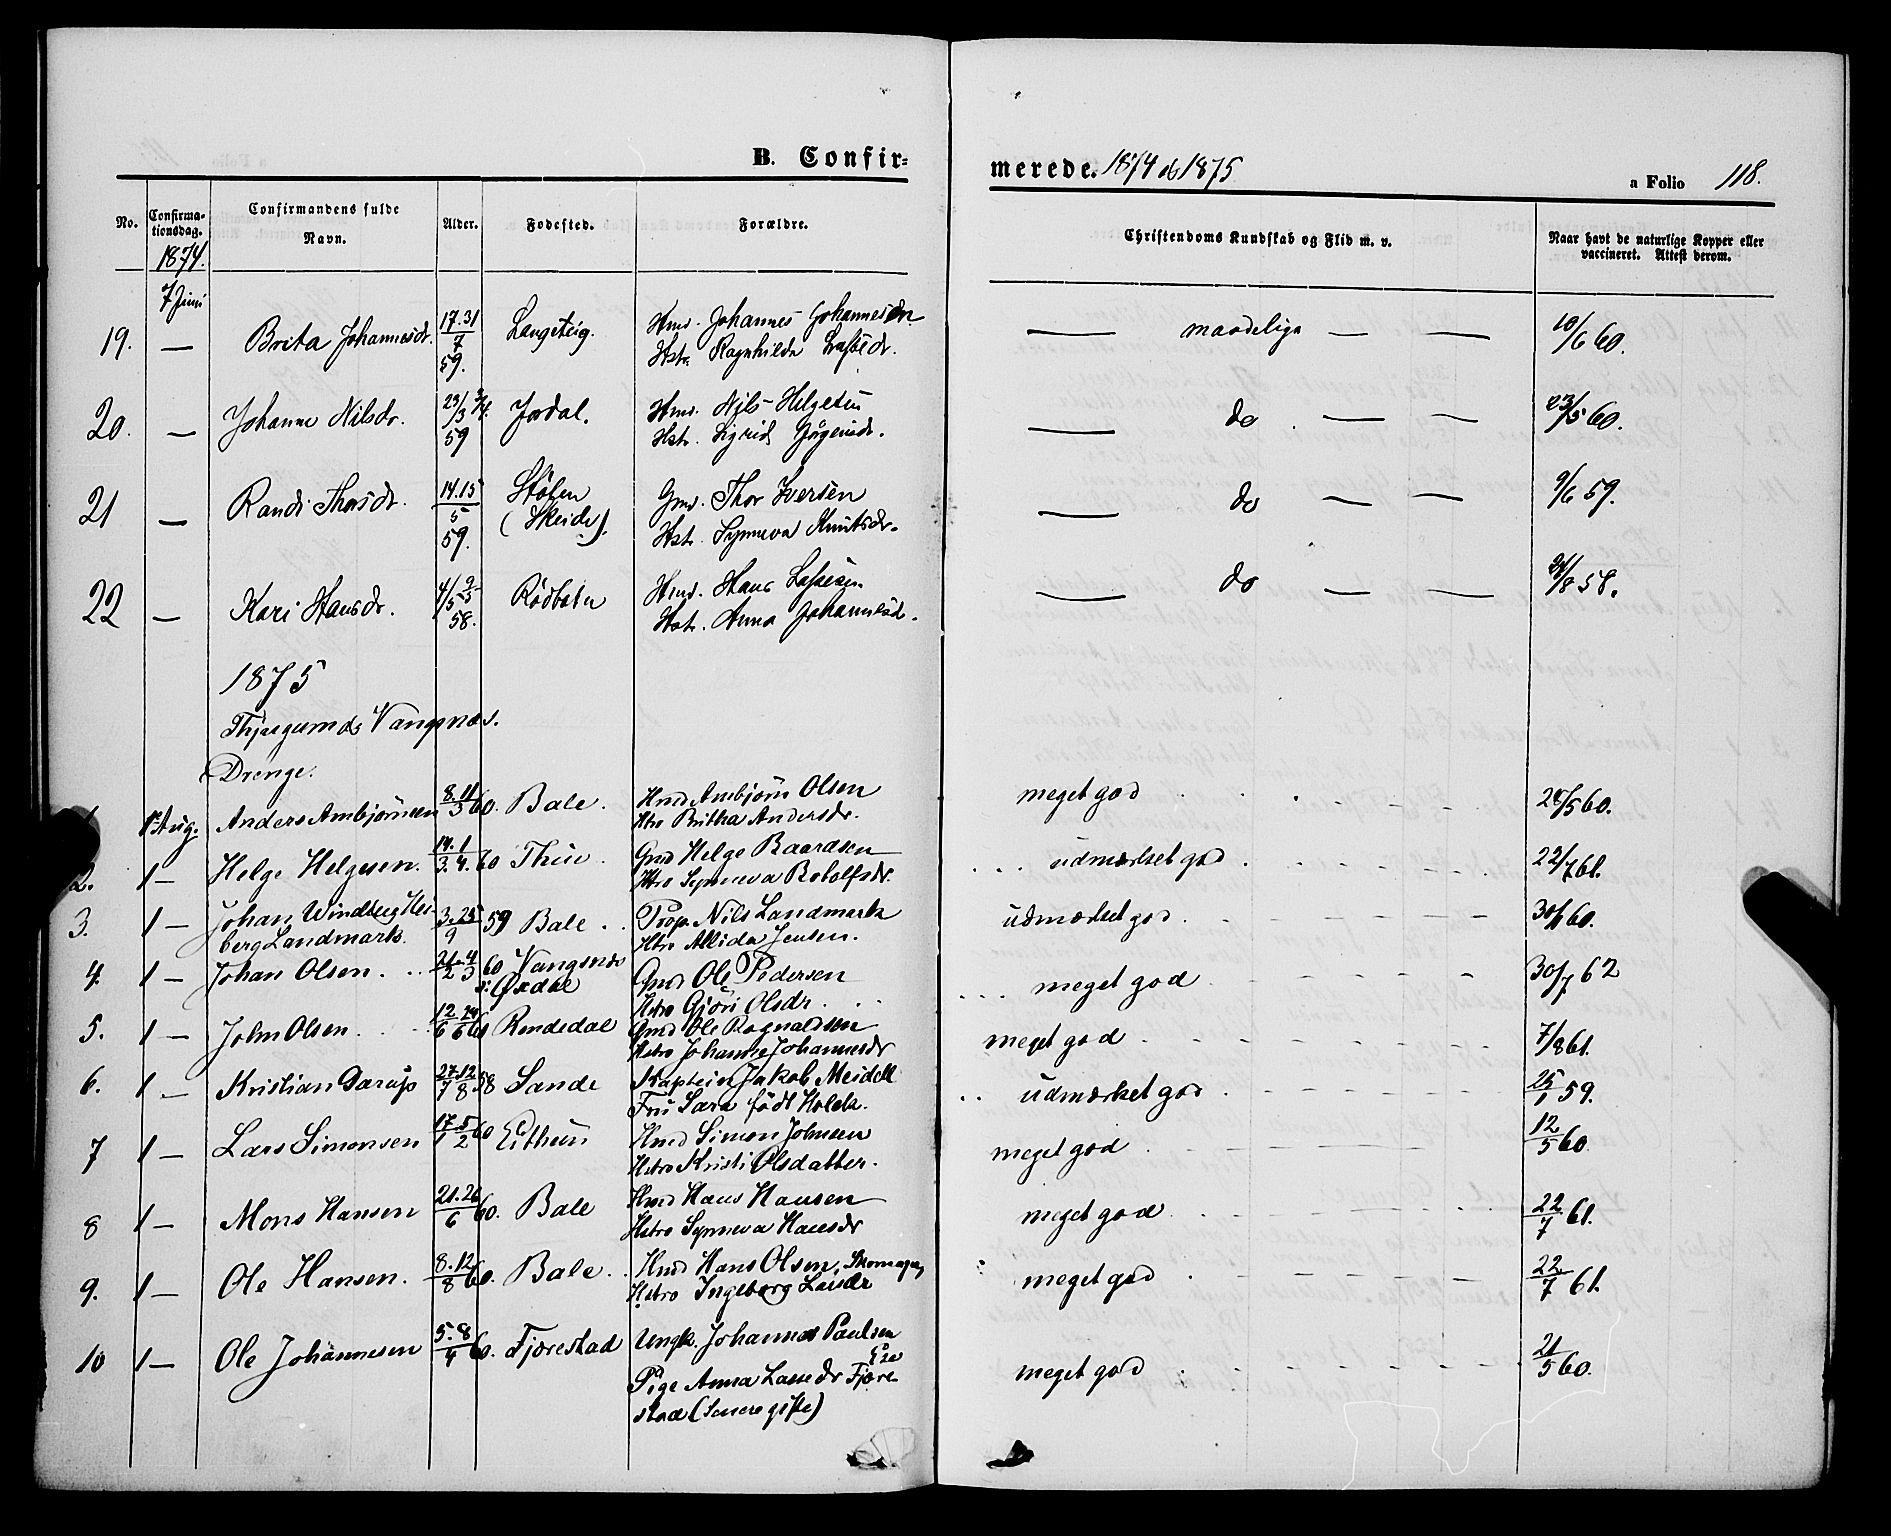 B. Confir=
merede. 1874 og 1875
a Folio 118.
No. Confirma-tionsdag. Confirmandens fulde Navn. Alder. Fødested. Forældre. Christendoms Kundskab og Flid m. v. Naar havt de naturlige Kopper eller vaccineret. Attest derom.
1874.
7 Juni
19. — Brita Johannesdr. 17.31/7 59. Langeteig. Hmd. Johannes Johannesen
Hstr. Ragnhilde Lassedr. — maadelige — — 10/6 60.
20. — Johanne Nilsdr. 23/3 59 Jordal. Hmd. Nils Helgesen
Hstr. Sigrid — do. — — 23/5 60.
21 — Randi Thorsdr. 14.15/5 59. (Skeide). Gmd. Thor Iversen
Hst. Synneva Knutsdr. — do — — 9/6 59.
22 — Kari Hansdr. 58. Hmd. Hans Lassesen
Hst. Anna Johannesd. — do — — 58.
1875
Vangsnæs.
Drenge.
1 1 Aug. Anders Ambjørnsen 8.11/3 60. Bale. Hmd Ambjørn Olsen
Htro Britha Andersdr. meget god 60.
2. 1 — Helge Helgesen. 60 Thue. Gmd Helge Baardsen
Htro Synneva Rotolfsdr. udmærket god 22/7 61.
3. 1 — Johan Windberg Hes-
berg Landmark. 3.25/9 59 Bale. Prop. Nils Landmark
Htro Allida Jensen. udmærket god 60.
4. 1 — Johan Olsen. 60 Vangsnæs
s: Øxdal Gmd Ole Pedersen
Hstro Gjøri Olsdr. meget god 30/7 62
5. 1 — John Olsen. Rendedal Gmd Ole Rognaldsen
Hstro Johanne Johannesdr meget god 7/8 61.
6. 1 — Kristian Darup 27.12/7 8. 58 Sande Kaptein Jakob Meidell
Fru Sara født Holck. udmærket god 25/1 59.
7 1 — Lars Simonsen 17.5/1 2 60 Eithun Hmd Simon Johnsen
Hstro Kristi Olsdatter. meget god 12/5 60
8 1 — Mons Hansen 21.26/6 60. Bale Hmd Hans Hansen
Hstro Synneva Hansdr meget god 22/7 61.
9. 1 — Ole Hansen. 8.12/8 60. Bale. Hmd Hans Olsen,
Hstro Ingeborg Larsdr meget god 22/7 61.
10 1 — Ole Johannesen 5.8/4 60. Fjærestad Ungk. Johannes Paulsen
Pige Anna Lassedr Fjære-
stad (Senere gifte) meget god 21/5 60.